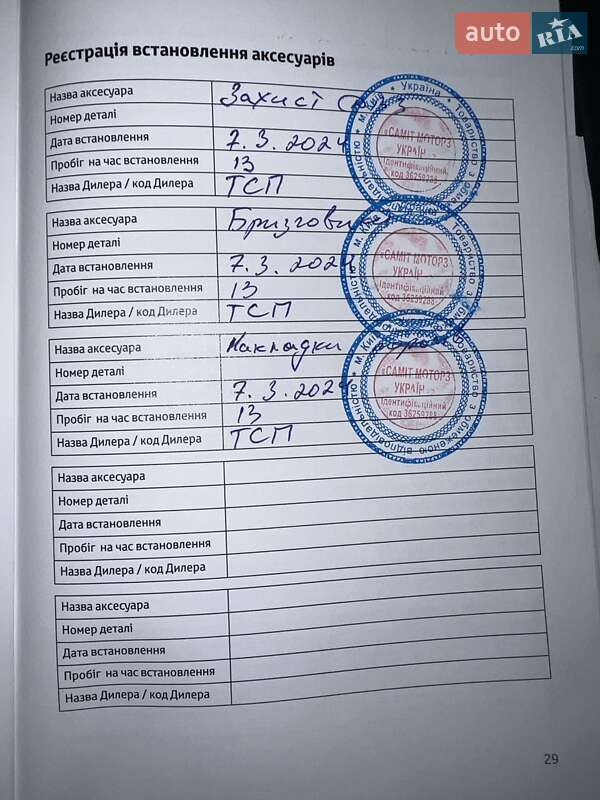 auto RIA .com
Реєстрація встановлення аксесуарів
Назва аксесуара Захист
Номер деталі
Дата встановлення 7.3.2024
Пробіг на час встановлення 13
Назва Дилера / код Дилера ТСП
Назва аксесуара
Номер деталі
Дата встановлення 7.3.2024
Пробіг на час встановлення 13
Назва Дилера / код Дилера ТСП
Назва аксесуара Накладки
Номер деталі
Дата встановлення 7.3.2024
Пробіг на час встановлення 13
Назва Дилера / код Дилера ТСП
м. Київ * Україна * Товариство з
«САМІТ МОТОРЗ
УКРАЇН
Ідентифікаційний
код 36259288
«САМІТ МОТОРЗ
УКРАЇН
Ідентифікаційний
код 36259288
м. Київ Товариство з обмеженою відповідальністю
«САМІТ МОТОРЗ
УКРАЇН
Ідентифікаційний
код 36259288
Назва аксесуара
Номер деталі
Дата встановлення
Пробіг на час встановлення
Назва Дилера / код Дилера
Назва аксесуара
Номер деталі
Дата встановлення
Пробіг на час встановлення
Назва Дилера / код Дилера
29